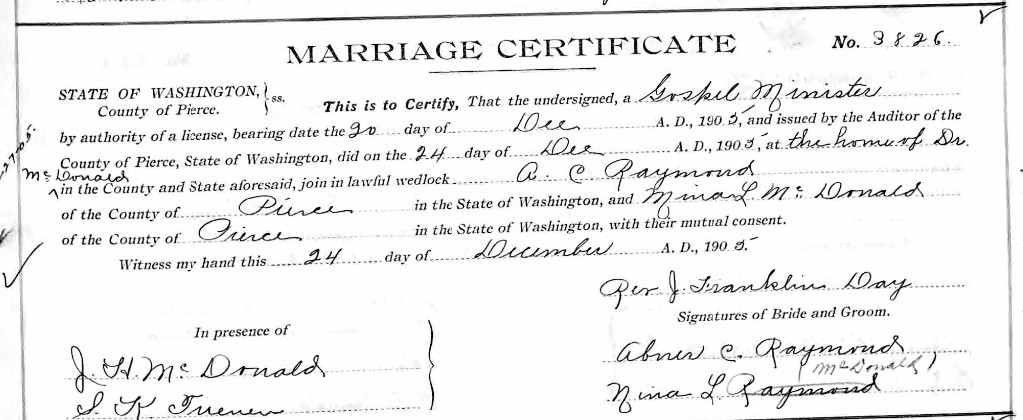 MARRIAGE CERTIFICATE No. 3826.
STATE OF WASHINGTON, } ss.
County of Pierce.
This is to Certify, That the undersigned, a Gospel Minister
by authority of a license, bearing date the 20 day of Dec A. D., 1905, and issued by the Auditor of the
County of Pierce, State of Washington, did on the 24 day of Dec A. D., 1905, at the home of Dr.
McDonald
in the County and State aforesaid, join in lawful wedlock A. C. Raymond
of the County of Pierce in the State of Washington, and Nina L. McDonald
of the County of Pierce in the State of Washington, with their mutual consent.
Witness my hand this 24 day of December A. D., 1905.
Rev J. Franklin Day
Signatures of Bride and Groom.
In presence of
J. H. McDonald
Abner C. Raymond
(McDonald)
Nina L Raymond